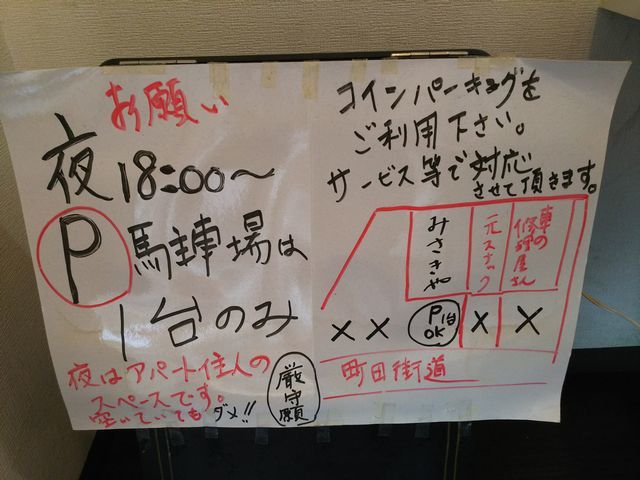 お願い
夜18:00〜
P 馬車場は
1台のみ
夜はアパート住人の
スペースです。
空いていてもダメ!!
厳守願
コインパーキングを
ご利用下さい。
サービス等で対応
させて頂きます。
みさきや
元スナック
車の
修理屋さん
× ×
P1台
OK
× ×
町田街道